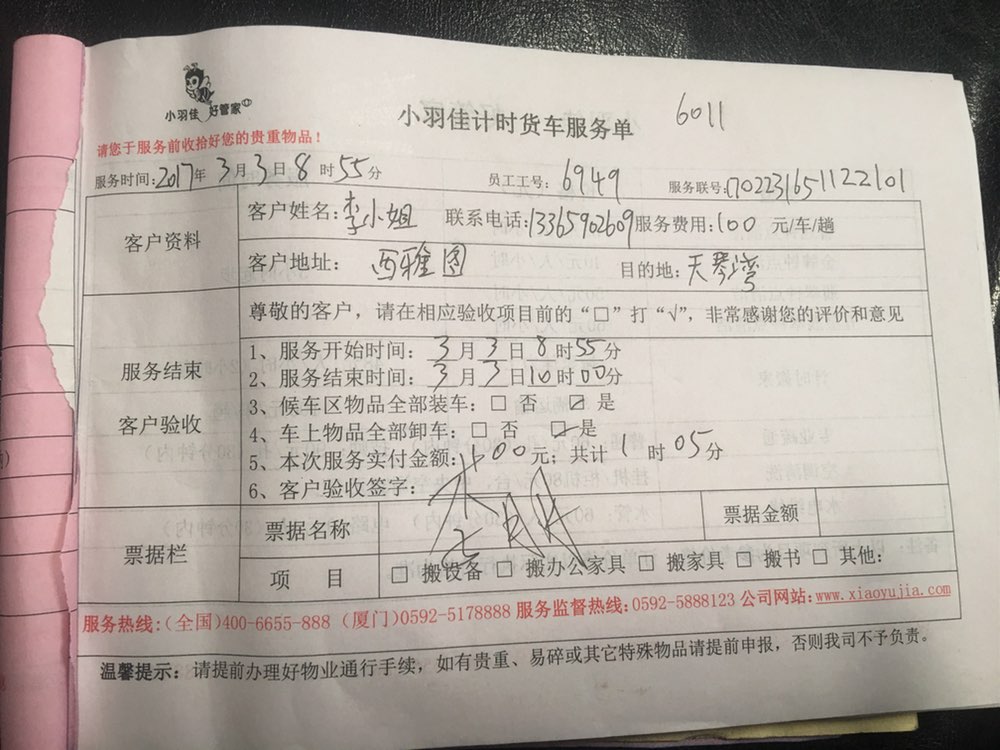 小羽佳 好管家
小羽佳计时货车服务单 6011
请您于服务前收拾好您的贵重物品！
服务时间:2017年 3月3日8时55分 员工工号:6949 服务联号:1702231651122101
客户资料 客户姓名:李小姐 联系电话:13365902609 服务费用:100 元/车/趟
客户地址: 西雅图 目的地:天琴湾
尊敬的客户，请在相应验收项目前的“□”打“√”，非常感谢您的评价和意见
服务结束
客户验收
1、服务开始时间: 3月3日8时55分
2、服务结束时间: 3月3日10时00分
3、候车区物品全部装车: □ 否 ☑ 是
4、车上物品全部卸车: □ 否 ☑ 是
5、本次服务实付金额: 100元; 共计 1时05分
6、客户验收签字:
票据栏 票据名称 票据金额
项 目 □ 搬设备 □ 搬办公家具 □ 搬家具 □ 搬书 □ 其他:
服务热线:(全国)400-6655-888 (厦门)0592-5178888 服务监督热线:0592-5888123 公司网站:www.xiaoyujia.com
温馨提示: 请提前办理好物业通行手续，如有贵重、易碎或其它特殊物品请提前申报，否则我司不予负责。